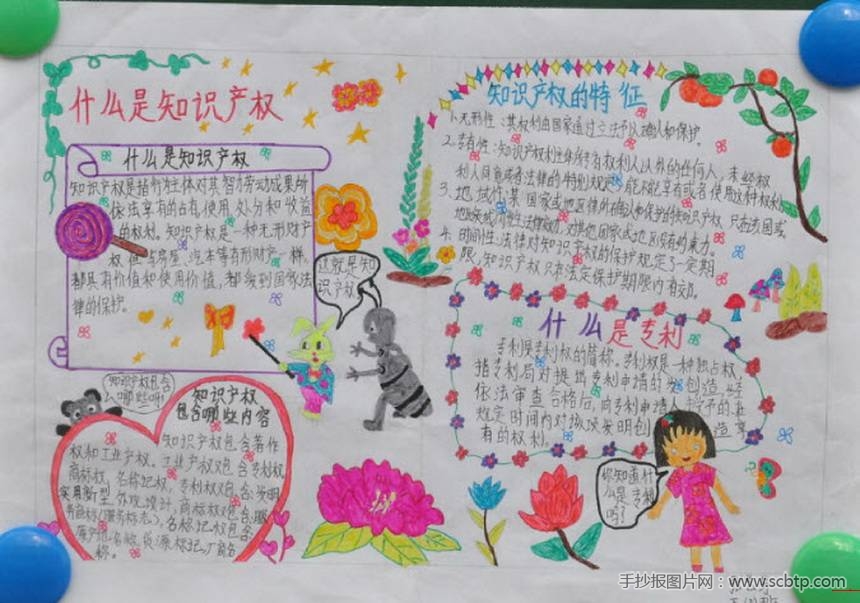 什么是知识产权
什么是知识产权
知识产权是指权利主体对其智力劳动成果所
依法享有的占有、使用、处分和收益
的权利。知识产权是一种无形财产
权，他与房屋、汽车等有形财产一样，
都具有价值和使用价值，都受到国家法
律的保护。
这就是知
识产权
知识产权包含
哪些呀!
知识产权
包含哪些内容
知识产权包含著作
权和工业产权。工业产权包含专利权，
商标权，名称记权，专利权包含：发明
实用新型，外观设计，商标权包含：服
务商标(服务标志)，名称记权包含：
货源标记，厂商名
称。
知识产权的特征
1、无形性：其权利由国家通过立法予以确认和保护。
2、专有性：知识产权利主体所专有权利人以外的任何人，未经权
利人同意或者法律的特别规定，都不能享有或者使用这种权利。
3、地域性：某国家或地区法律所确认和保护的知识产权，只在该国或
地区领域内发生法律效力，对其他国家或地区没有约束力。
4、时间性：法律对知识产权的保护规定了一定期
限，知识产权只在法定保护期限内有效。
什么是专利
专利是专利权的简称。专利权是一种独占权，
指专利局对提出专利申请的发明创造，经
依法审查合格后，向专利申请人授予的在
规定时间内对该项发明创造享
有的权利。
你知道什
么是专利
吗?
手抄报图片网：www.scbtp.com